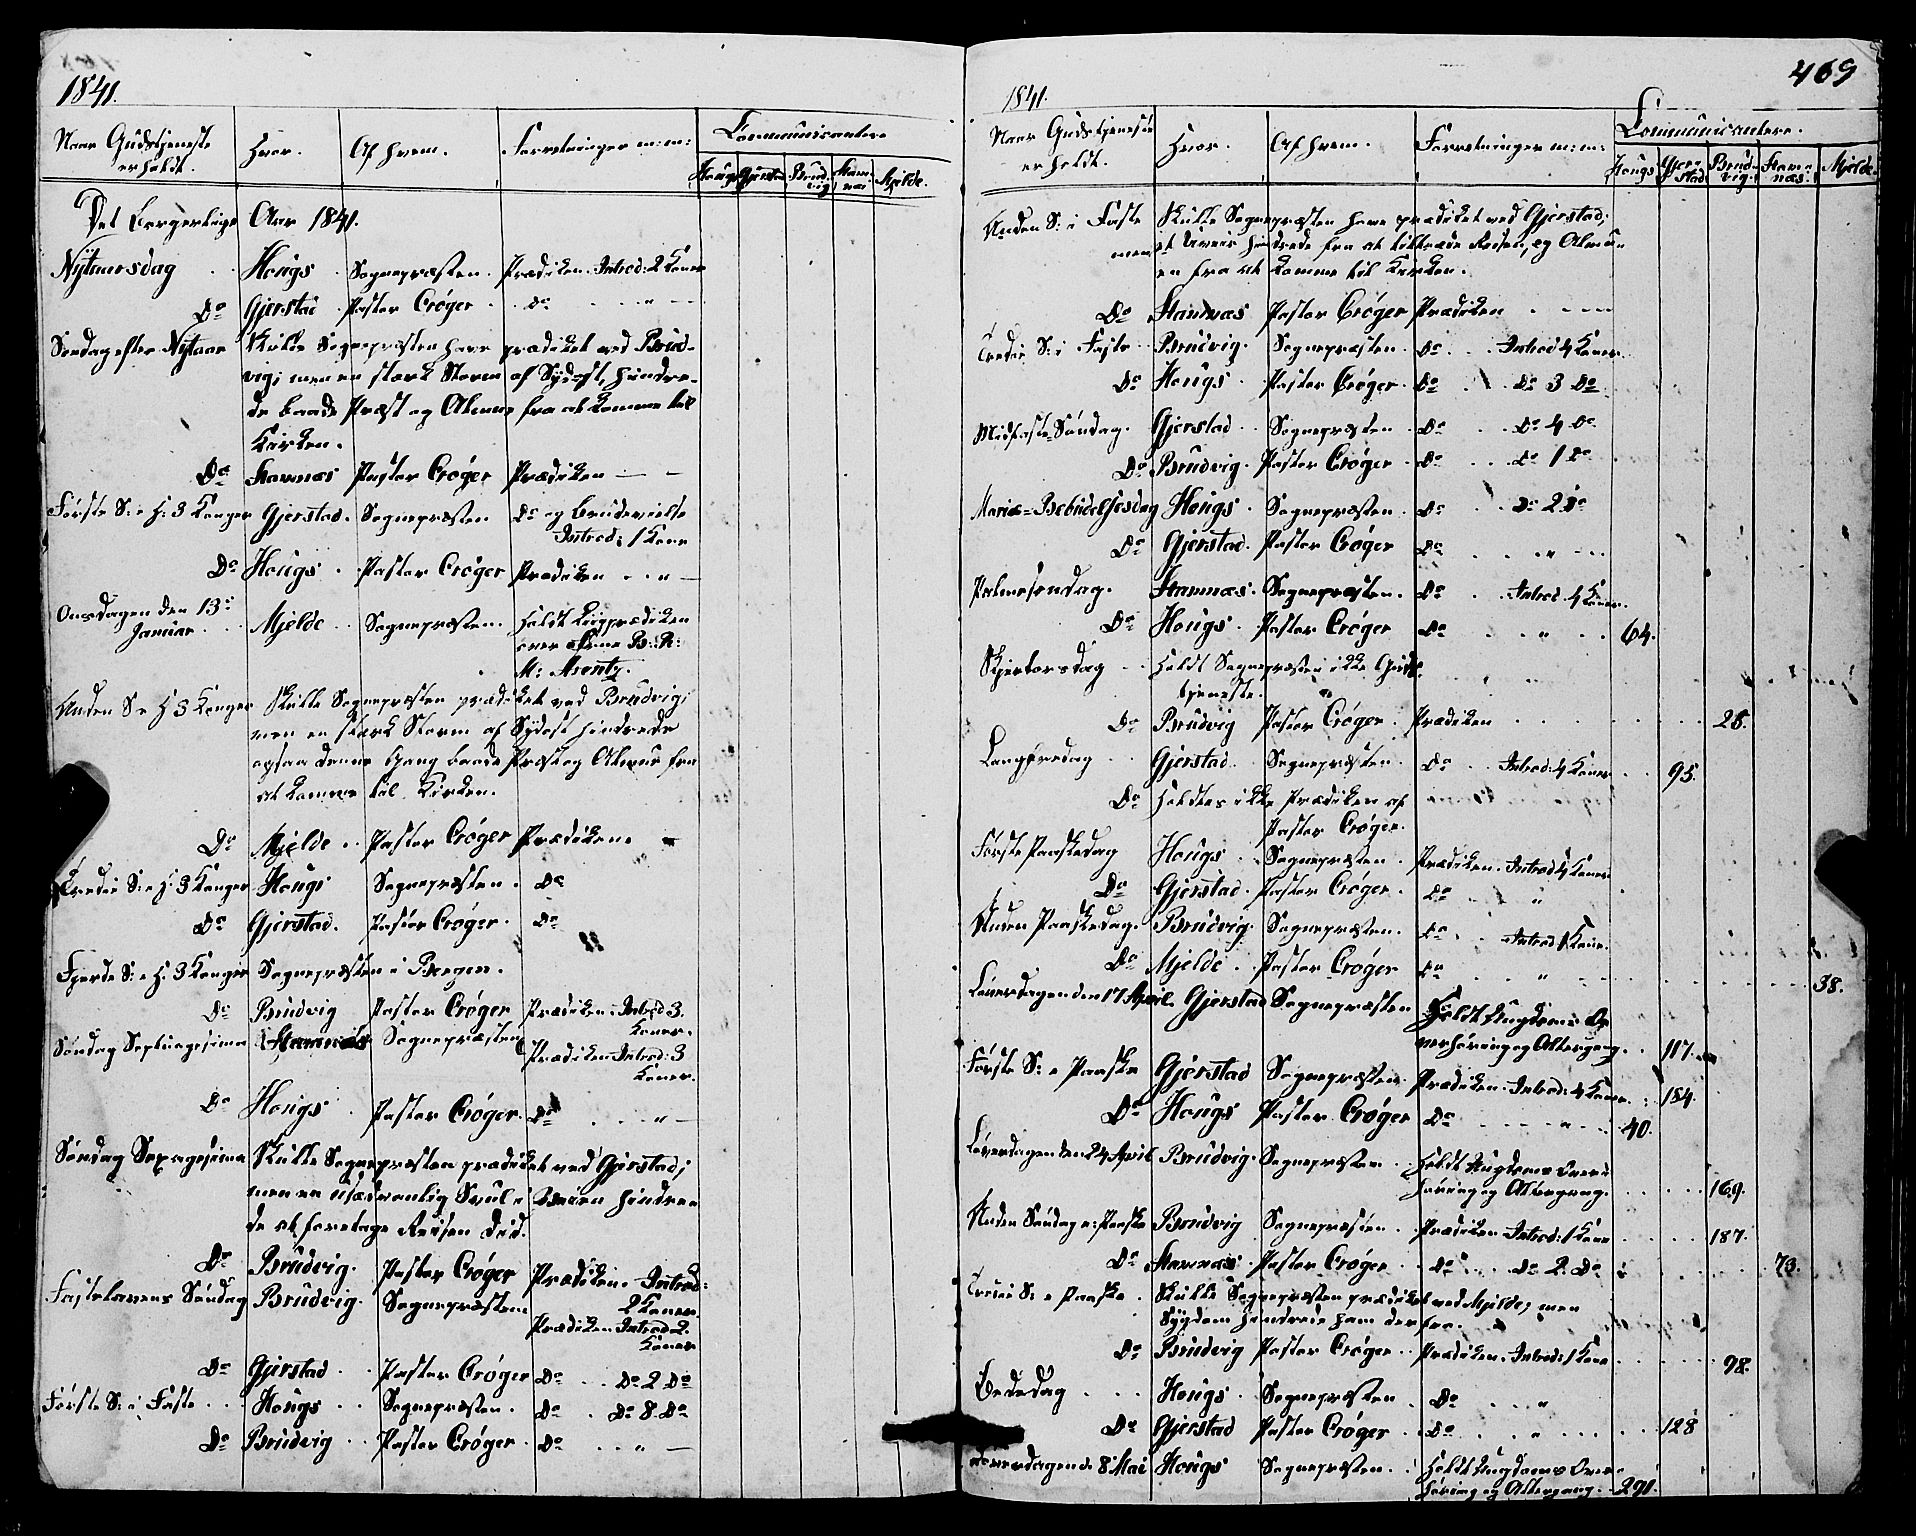 1841.
Naar Gudstjeneste er holdt. Hvor. Af hvem. Forretninger m: m: Communicantere
Hougs Gjerstad Brudvig Stamnæs Mjelde.
Det borgerlige Aar 1841.
Nÿtaarsdag Hougs Sognepræsten. Prædiken. Introd: 2 Koner
Do Gjerstad Pastor Crøger Do "
Søndag efter Nÿtaar Skulde Sognepræsten have prædiket ved Brud-
vig; men en stærk Storm af Sÿdost, hindre-
de baade Præst og Almue fra at komme til
Kirken.
Do Stamnæs Pastor Crøger Prædiken
Første S: e H: 3 Konger Gjerstad. Sognepræsten Do og Brudevielse
Introd: 1 Kone
Do Hougs Pastor Crøger Prædiken "
Onsdagen den 13de
Januar Mjelde Sognepræsten. Holdt Liigprædiken
over
M: Mentz.
Anden S. e H 3 Konger Skulde Sognepræsten prædiket ved Brudvig;
men en stærk Storm af Sÿdost hindrede
ogsaa denne Gang baade Præst og Almue fra
at komme til Kirken.
Do Mjelde Pastor Crøger Prædiken.
Tredie S: e H: 3 Konger Hougs Sognepræsten. Do
Do Gjerstad. Pastor Crøger. Do
Fjerde S: e H: 3 Konger Sognepræsten i Bergen.
Do Brudvig Pastor Crøger Prædiken. Introd 3
Koner.
Søndag Septuagesima Stamnæs Sognepræsten Prædiken Introd: 3
Koner.
Do Hougs Pastor Crøger. Do "
Søndag Sexagesima Skulde Sognepræsten prædiket ved Gjerstad;
men en usædvanlig Svul i Søen hindre-
de at foretage Reisen did.
Do Brudvig. Pastor Crøger Prædiken. Introd:
2 Koner.
Fastelavens Søndag Brudvig. Sognepræsten Prædiken Introd 2.
Koner
Do Gjerstad Pastor Crøger Do Do 2 Do
Første S: i Faste Hougs Sognepræsten. Do Do 8. Do
Do Brudvig Pastor Crøger. Do "
469
1841.
Naar Gudstjeneste er holdt. Hvor. Af hvem. Forretninger m: m: Communicantere.
Hougs Gjerstad Brudvig. Stamnæs. Mjelde.
Anden S: i Faste Skulde Sognepræsten have prædiket ved Gjerstad;
men et Uveir hindrede fra at tiltræde Reisen, og Almu-
en fra at komme til Kirken.
Do Stamnæs Pastor Crøger Prædiken
Tredie S: i Faste Brudvig. Sognepræsten. Do Introd 4 Koner.
Do Hougs Pastor Crøger. Do Do 3 Do
Midfaste-Søndag. Gjerstad Sognepræsten. Do Do 4 Do
Do Brudvig. Pastor Crøger Do Do 1 Do
Mariæ-Bebudelsesdag Hougs Sognepræsten. Do Do 2 Do
Do Gjerstad. Pastor Crøger Do "
Palmesøndag. Stamnæs. Sognepræsten. Do Introd. 4 Koner.
Do Hougs. Pastor Crøger Do " 64.
Skjertorsdag Holdt Sognepræsten ikke Guds-
tjeneste. "
Do Brudvig Pastor Crøger. Prædiken 28.
Langfredag Gjerstad Sognepræsten. Do Introd: 4 Koner 95.
Do Holdtes ikke Prædiken af
Pastor Crøger.
Første Paaskedag Hougs Sognepræsten. Prædiken. Introd 4 Koner
Do Gjerstad. Pastor Crøger. Do "
Anden Paaskedag. Brudvig. Sognepræsten. Do Introd 1 Kone.
Do Mjelde Pastor Crøger Do " 38.
Løverdagen den 17 April Gjerstad Sognepræsten Holdt Ungdoms O-
verhøring og Altergang. 117.
Første S: e Paaske Gjerstad Sognepræsten Prædiken. Introd: 4 Koner 184.
Do Hougs Pastor Crøger Do " 40.
Løverdagen den 24 April Brudvig. Sognepræsten. Holdt Ungdoms Over-
høring og Altergang. 169.
Anden Søndag e: Paaske Brudvig Sognepræsten. Prædiken Introd: 1 Kone 187.
Do Stamnæs Pastor Crøger Do Do 2. Do 73.
Tredie S: e Paaske. Skulde Sognepræsten prædiket ved Mjelde; men
Sÿgdom hindrede ham derfra.
Do Brudvig Pastor Crøger Prædiken. Introd: 1 Kone 98.
Bededag Hougs Sognepræsten Do "
Do Gjerstad Pastor Crøger. Do " 128
Løverdagen d. 8 Mai Hougs Sognepræsten. Holdt Ungdoms Over-
høring og Altergang. 291.